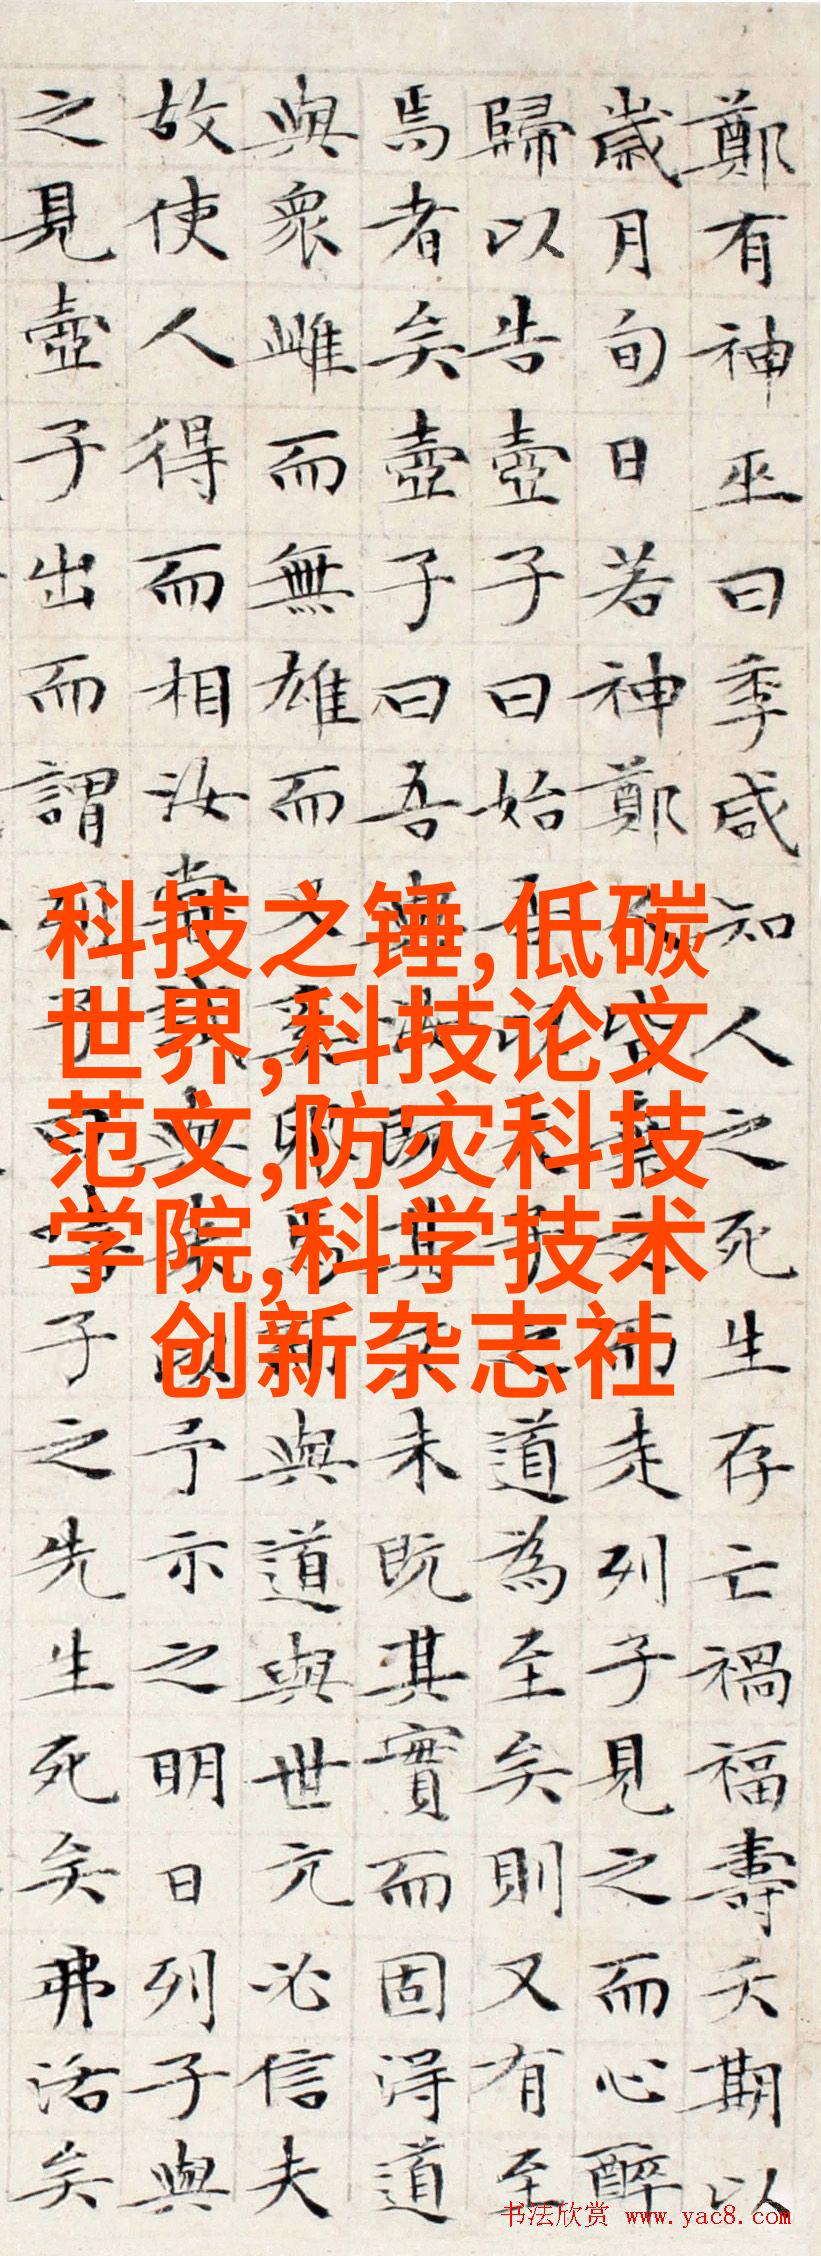 鄭有神巫曰季咸知人之死生存亡禍福壽夭期以
歲月旬日若神鄭人皆棄之而走列子見之而心醉
歸以告壺子曰始吾以夫子之道為至矣則又有至
焉者矣壺子曰吾與汝既其文未既其實而固得道
與衆雌而無雄而又奚卵焉與道與世亢必信夫
故使人得而相汝嘗試與來以予示之明日列子與
之見壺子出而謂列子曰嘻子之先生死矣弗活矣
科技之锤,低碳
世界,科技论文
范文,防灾科技
学院,科学技术
创新杂志社
书法欣赏 www.yac8.com